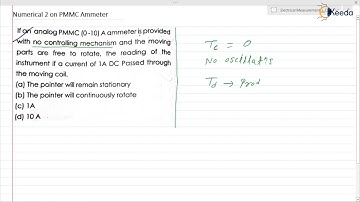 Numerical 2 on PMMC Ammeter
Electrical Measurements &
Keeda
If an analog PMMC (0-10) A ammeter is provided
with no controlling mechanism and the moving
parts are free to rotate, the reading of the
instrument if a current of 1A DC Passed through
the moving coil.
(a) The pointer will remain stationary
(b) The pointer will continuously rotate
(c) 1A
(d) 10 A
Tc = 0
No oscillations
Td → Prod